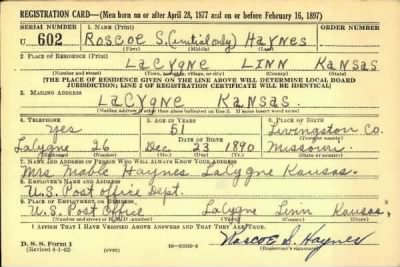 REGISTRATION CARD—(Men born on or after April 28, 1877 and on or before February 16, 1897)
SERIAL NUMBER 1. NAME (Print) ORDER NUMBER
U 602 Roscoe S.(initial only) Haynes
(First) (Middle) (Last)
2. PLACE OF RESIDENCE (Print)
LaCygne Linn Kansas
(Number and street) (Town, township, village, or city) (County) (State)
[THE PLACE OF RESIDENCE GIVEN ON THE LINE ABOVE WILL DETERMINE LOCAL BOARD
JURISDICTION; LINE 2 OF REGISTRATION CERTIFICATE WILL BE IDENTICAL]
3. MAILING ADDRESS
LaCygne Kansas.
(Mailing address if other than place indicated on line 2. If same insert word same)
4. TELEPHONE 5. AGE IN YEARS 6. PLACE OF BIRTH
Yes 51 Livingston Co.
DATE OF BIRTH (Town or county)
LaCygne 26 Dec 23 1890 Missouri
(Exchange) (Number) (Mo.) (Day) (Yr.) (State or country)
7. NAME AND ADDRESS OF PERSON WHO WILL ALWAYS KNOW YOUR ADDRESS
Mrs Mable Haynes LaCygne Kansas.
8. EMPLOYER'S NAME AND ADDRESS
U.S. Post Office Dept.
9. PLACE OF EMPLOYMENT OR BUSINESS
U.S. Post Office LaCygne Linn Kansas.
(Number and street or R. F. D. number) (Town) (County) (State)
I AFFIRM THAT I HAVE VERIFIED ABOVE ANSWERS AND THAT THEY ARE TRUE.
D. S. S. Form 1
(Revised 4-1-42) (over) Roscoe S. Haynes
(Registrant's signature)